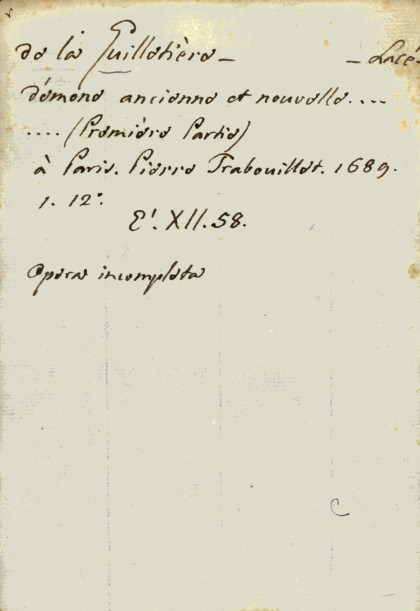 de la Guillotière - - Lacé-
démone ancienne et nouvelle....
.... (Première Partie)
à Paris. Pierre Trabouillet. 1689.
1. 12°.
E'. XII. 58.
Opera incompleta
C